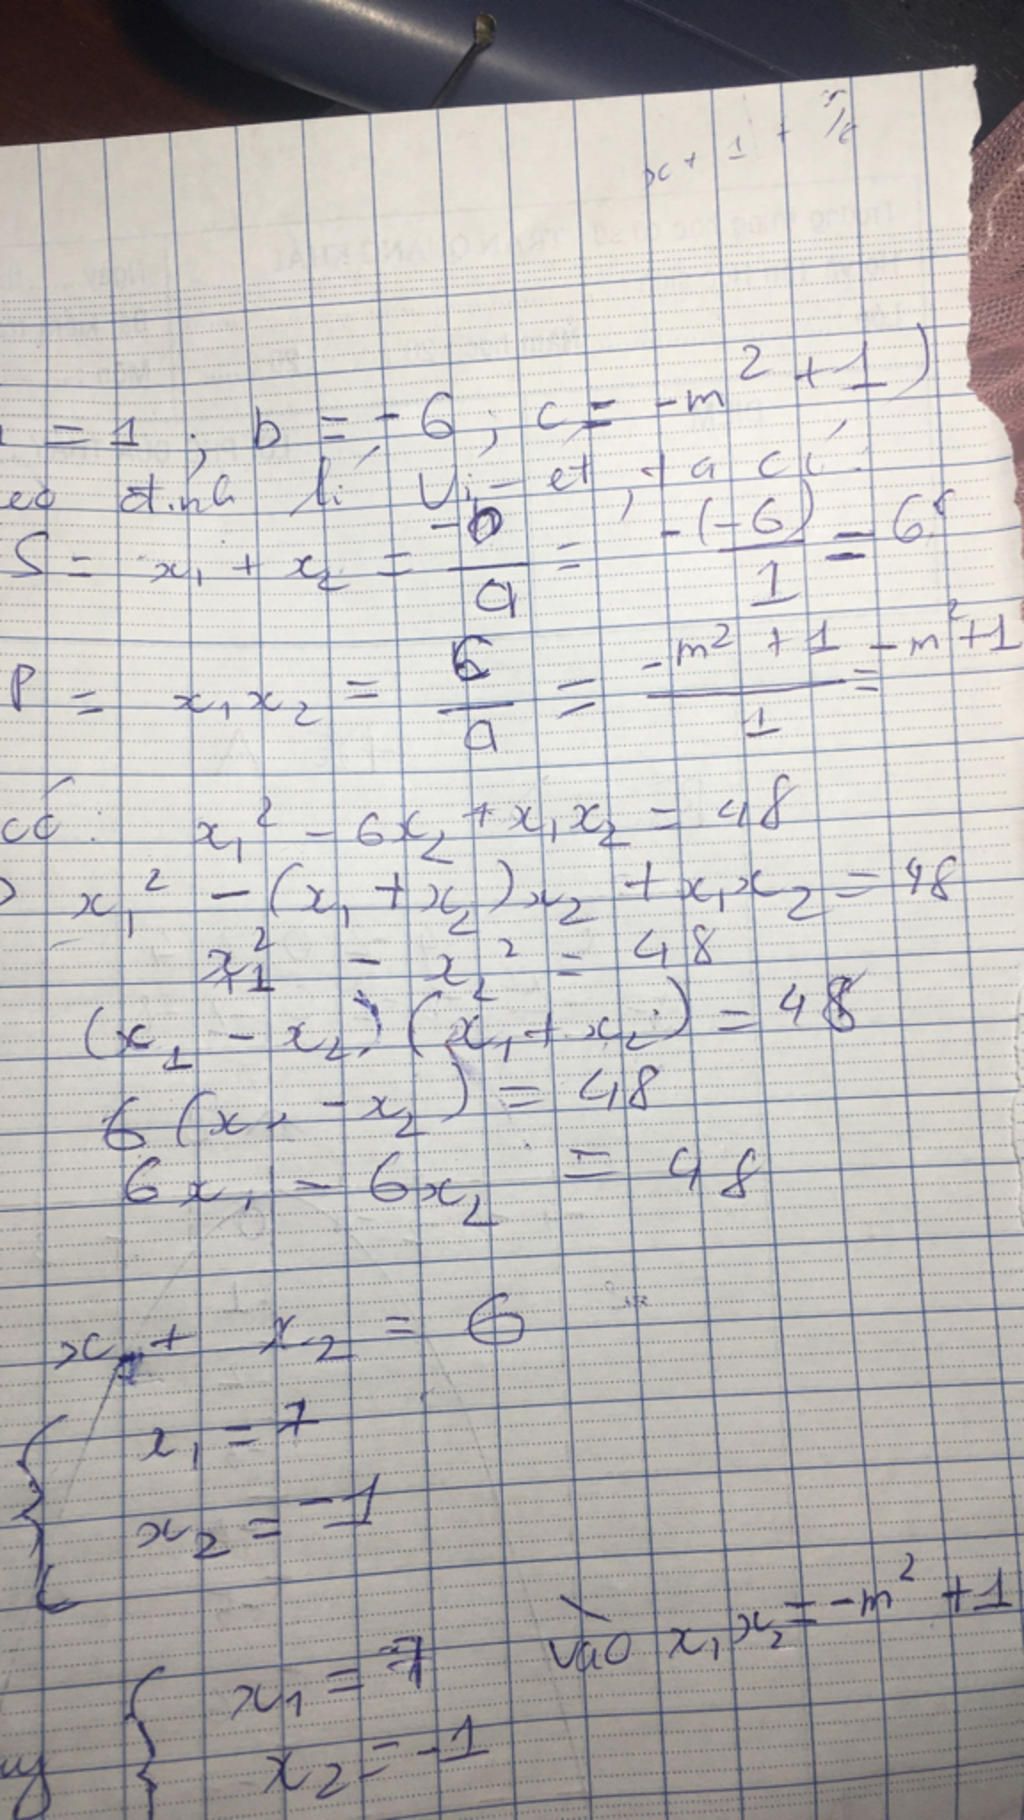 x + 1
= 1 ; b = - 6 ; c = -m² + 1 )
lí Vi-et, ta có:
S = x₁ + x₂ = -b/a = -(-6)/1 = 6
P = x₁x₂ = c/a = -m² + 1/1 = -m² + 1
có: x₁² - 6x₂ + x₁x₂ = 48
x₁² - (x₁ + x₂)x₂ + x₁x₂ = 48
x₁² - x₂² = 48
(x₁ - x₂)(x₁ + x₂) = 48
6(x₁ - x₂) = 48
6x₁ - 6x₂ = 48
x₁ + x₂ = 6
{ x₁ = 7
x₂ = -1
{ x₁ = 7 vào x₁x₂ = -m² + 1
x₂ = -1